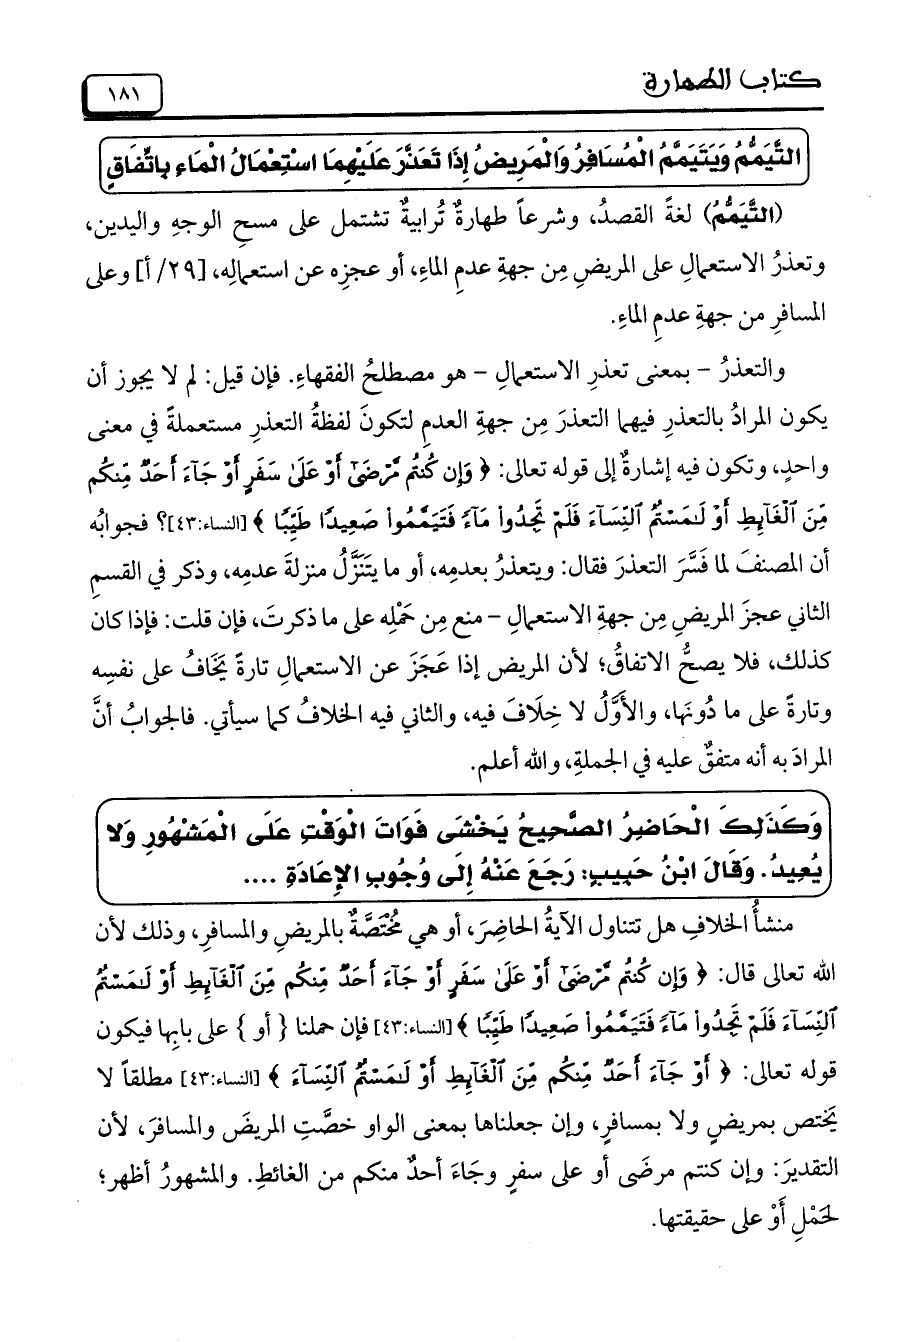 كتاب الطهارة
١٨١
التَّيَمُّمُ وَيَتَيَمَّمُ الْمُسَافِرُ وَالْمَرِيضُ إِذَا تَعَذَّرَ عَلَيْهِمَا اسْتِعْمَالُ الْمَاءِ بِاتِّفَاقٍ
(التَّيَمُّمُ) لغةً القصدُ، وشرعاً طهارةٌ تُرابيةٌ تشتمل على مسحِ الوجهِ واليدين،
وتعذرُ الاستعمالِ على المريضِ مِن جهةِ عدمِ الماءِ، أو عجزِه عن استعمالِه، [٢٩/ أ] وعلى
المسافرِ من جهةِ عدمِ الماءِ.
والتعذرُ – بمعنى تعذرِ الاستعمالِ – هو مصطلحُ الفقهاءِ. فإن قيل: لم لا يجوز أن
يكون المرادُ بالتعذرِ فيهما التعذرَ مِن جهةِ العدمِ لتكونَ لفظةُ التعذرِ مستعملةً في معنى
واحدٍ، وتكون فيه إشارةٌ إلى قوله تعالى: ﴿ وَإِن كُنتُم مَّرْضَىٰٓ أَوْ عَلَىٰ سَفَرٍ أَوْ جَآءَ أَحَدٌ مِّنكُم
مِّنَ ٱلْغَآئِطِ أَوْ لَـٰمَسْتُمُ ٱلنِّسَآءَ فَلَمْ تَجِدُوا۟ مَآءً فَتَيَمَّمُوا۟ صَعِيدًا طَيِّبًا ﴾ [النساء:٤٣]؟ فجوابُه
أن المصنفَ لما فَسَّرَ التعذرَ فقال: ويتعذرُ بعدمِه، أو ما يتَنَزَّلُ منزلةَ عدمِه، وذكر في القسمِ
الثاني عجزَ المريضِ مِن جهةِ الاستعمالِ – منع مِن حَمْلِه على ما ذكرتَ، فإن قلت: فإذا كان
كذلك، فلا يصحُّ الاتفاقُ؛ لأن المريض إذا عَجَزَ عن الاستعمالِ تارةً يَخَافُ على نفسِه
وتارةً على ما دُونَها، والأَوَّلُ لا خِلَافَ فيه، والثاني فيه الخلافُ كما سيأتي. فالجوابُ أنَّ
المرادَ به أنه متفقٌ عليه في الجملةِ، والله أعلم.
وَكَذَلِكَ الْحَاضِرُ الصَّحِيحُ يَخْشَى فَوَاتَ الْوَقْتِ عَلَى الْمَشْهُورِ وَلا
يُعِيدُ. وَقَالَ ابْنُ حَبِيبٍ: رَجَعَ عَنْهُ إِلَى وُجُوبِ الإِعَادَةِ ....
منشأُ الخلافِ هل تتناول الآيةُ الحاضِرَ، أو هي مُخْتَصَّةٌ بالمريضِ والمسافرِ، وذلك لأن
الله تعالى قال: ﴿ وَإِن كُنتُم مَّرْضَىٰٓ أَوْ عَلَىٰ سَفَرٍ أَوْ جَآءَ أَحَدٌ مِّنكُم مِّنَ ٱلْغَآئِطِ أَوْ لَـٰمَسْتُمُ
ٱلنِّسَآءَ فَلَمْ تَجِدُوا۟ مَآءً فَتَيَمَّمُوا۟ صَعِيدًا طَيِّبًا ﴾ [النساء:٤٣] فإن حملنا { أو } على بابِها فيكون
قوله تعالى: ﴿ أَوْ جَآءَ أَحَدٌ مِّنكُم مِّنَ ٱلْغَآئِطِ أَوْ لَـٰمَسْتُمُ ٱلنِّسَآءَ ﴾ [النساء:٤٣] مطلقاً لا
يَختص بمريضٍ ولا بمسافرٍ، وإن جعلناها بمعنى الواوِ خصَّتِ المريضَ والمسافرَ، لأن
التقديرَ: وإن كنتم مرضَى أو على سفرٍ وجَاءَ أحدٌ منكم من الغائطِ. والمشهورُ أظهر؛
لحَمْلِ أَوْ على حقيقتها.